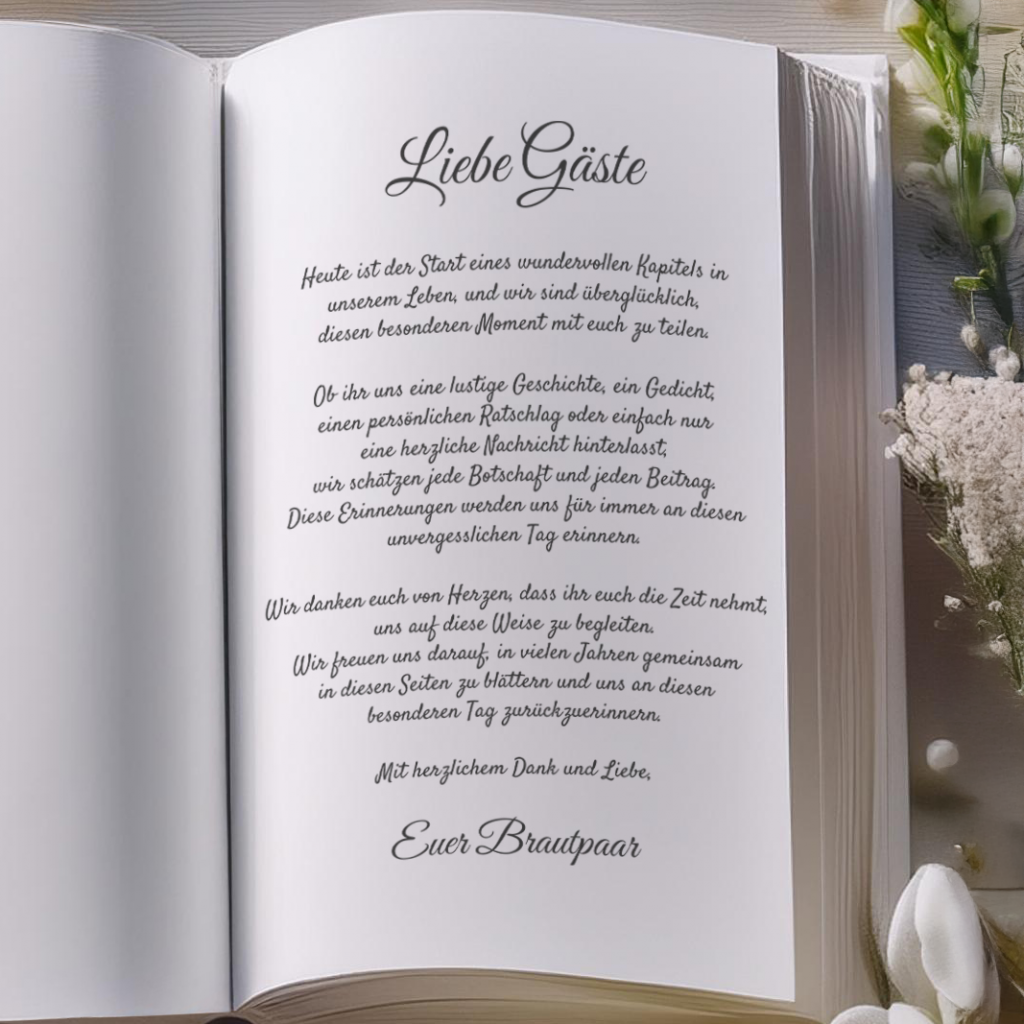 Liebe Gäste
Heute ist der Start eines wundervollen Kapitels in
unserem Leben, und wir sind überglücklich,
diesen besonderen Moment mit euch zu teilen.
Ob ihr uns eine lustige Geschichte, ein Gedicht,
einen persönlichen Ratschlag oder einfach nur
eine herzliche Nachricht hinterlasst,
wir schätzen jede Botschaft und jeden Beitrag.
Diese Erinnerungen werden uns für immer an diesen
unvergesslichen Tag erinnern.
Wir danken euch von Herzen, dass ihr euch die Zeit nehmt,
uns auf diese Weise zu begleiten.
Wir freuen uns darauf, in vielen Jahren gemeinsam
in diesen Seiten zu blättern und uns an diesen
besonderen Tag zurückzuerinnern.
Mit herzlichem Dank und Liebe,
Euer Brautpaar